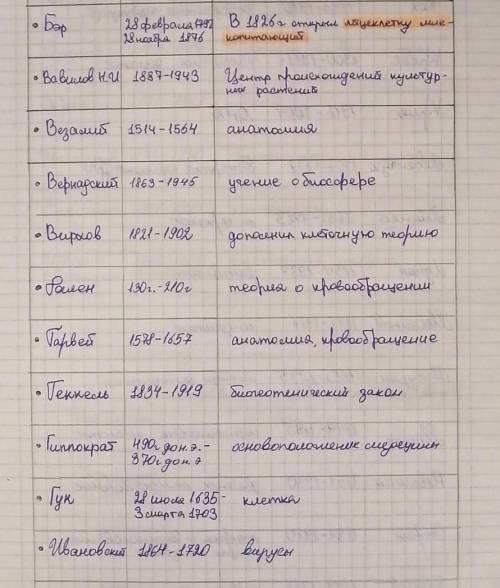 • Бэр 28 февраля 1792 В 1826г открыл яйцеклетку мле-
28 ноября 1876 копитающий
• Вавилов Н.И 1887-1943 Центр происхождений культур-
ных растений
• Везалий 1514-1564 анатомия
• Вернадский 1863-1945 учение о биосфере
• Вирхов 1821-1902 дополнил клеточную теорию
• Гален 130г.-210г теория о кровообращении
• Гарвей 1578-1657 анатомия, кровообращение
• Геккель 1834-1919 биогенетический закон
• Гиппократ 490г до н.э.- основоположеник медецины
370г до н.э
• Гук 28 июля 1635- клетка
3 марта 1703
• Ивановский 1864-1720 вирусы